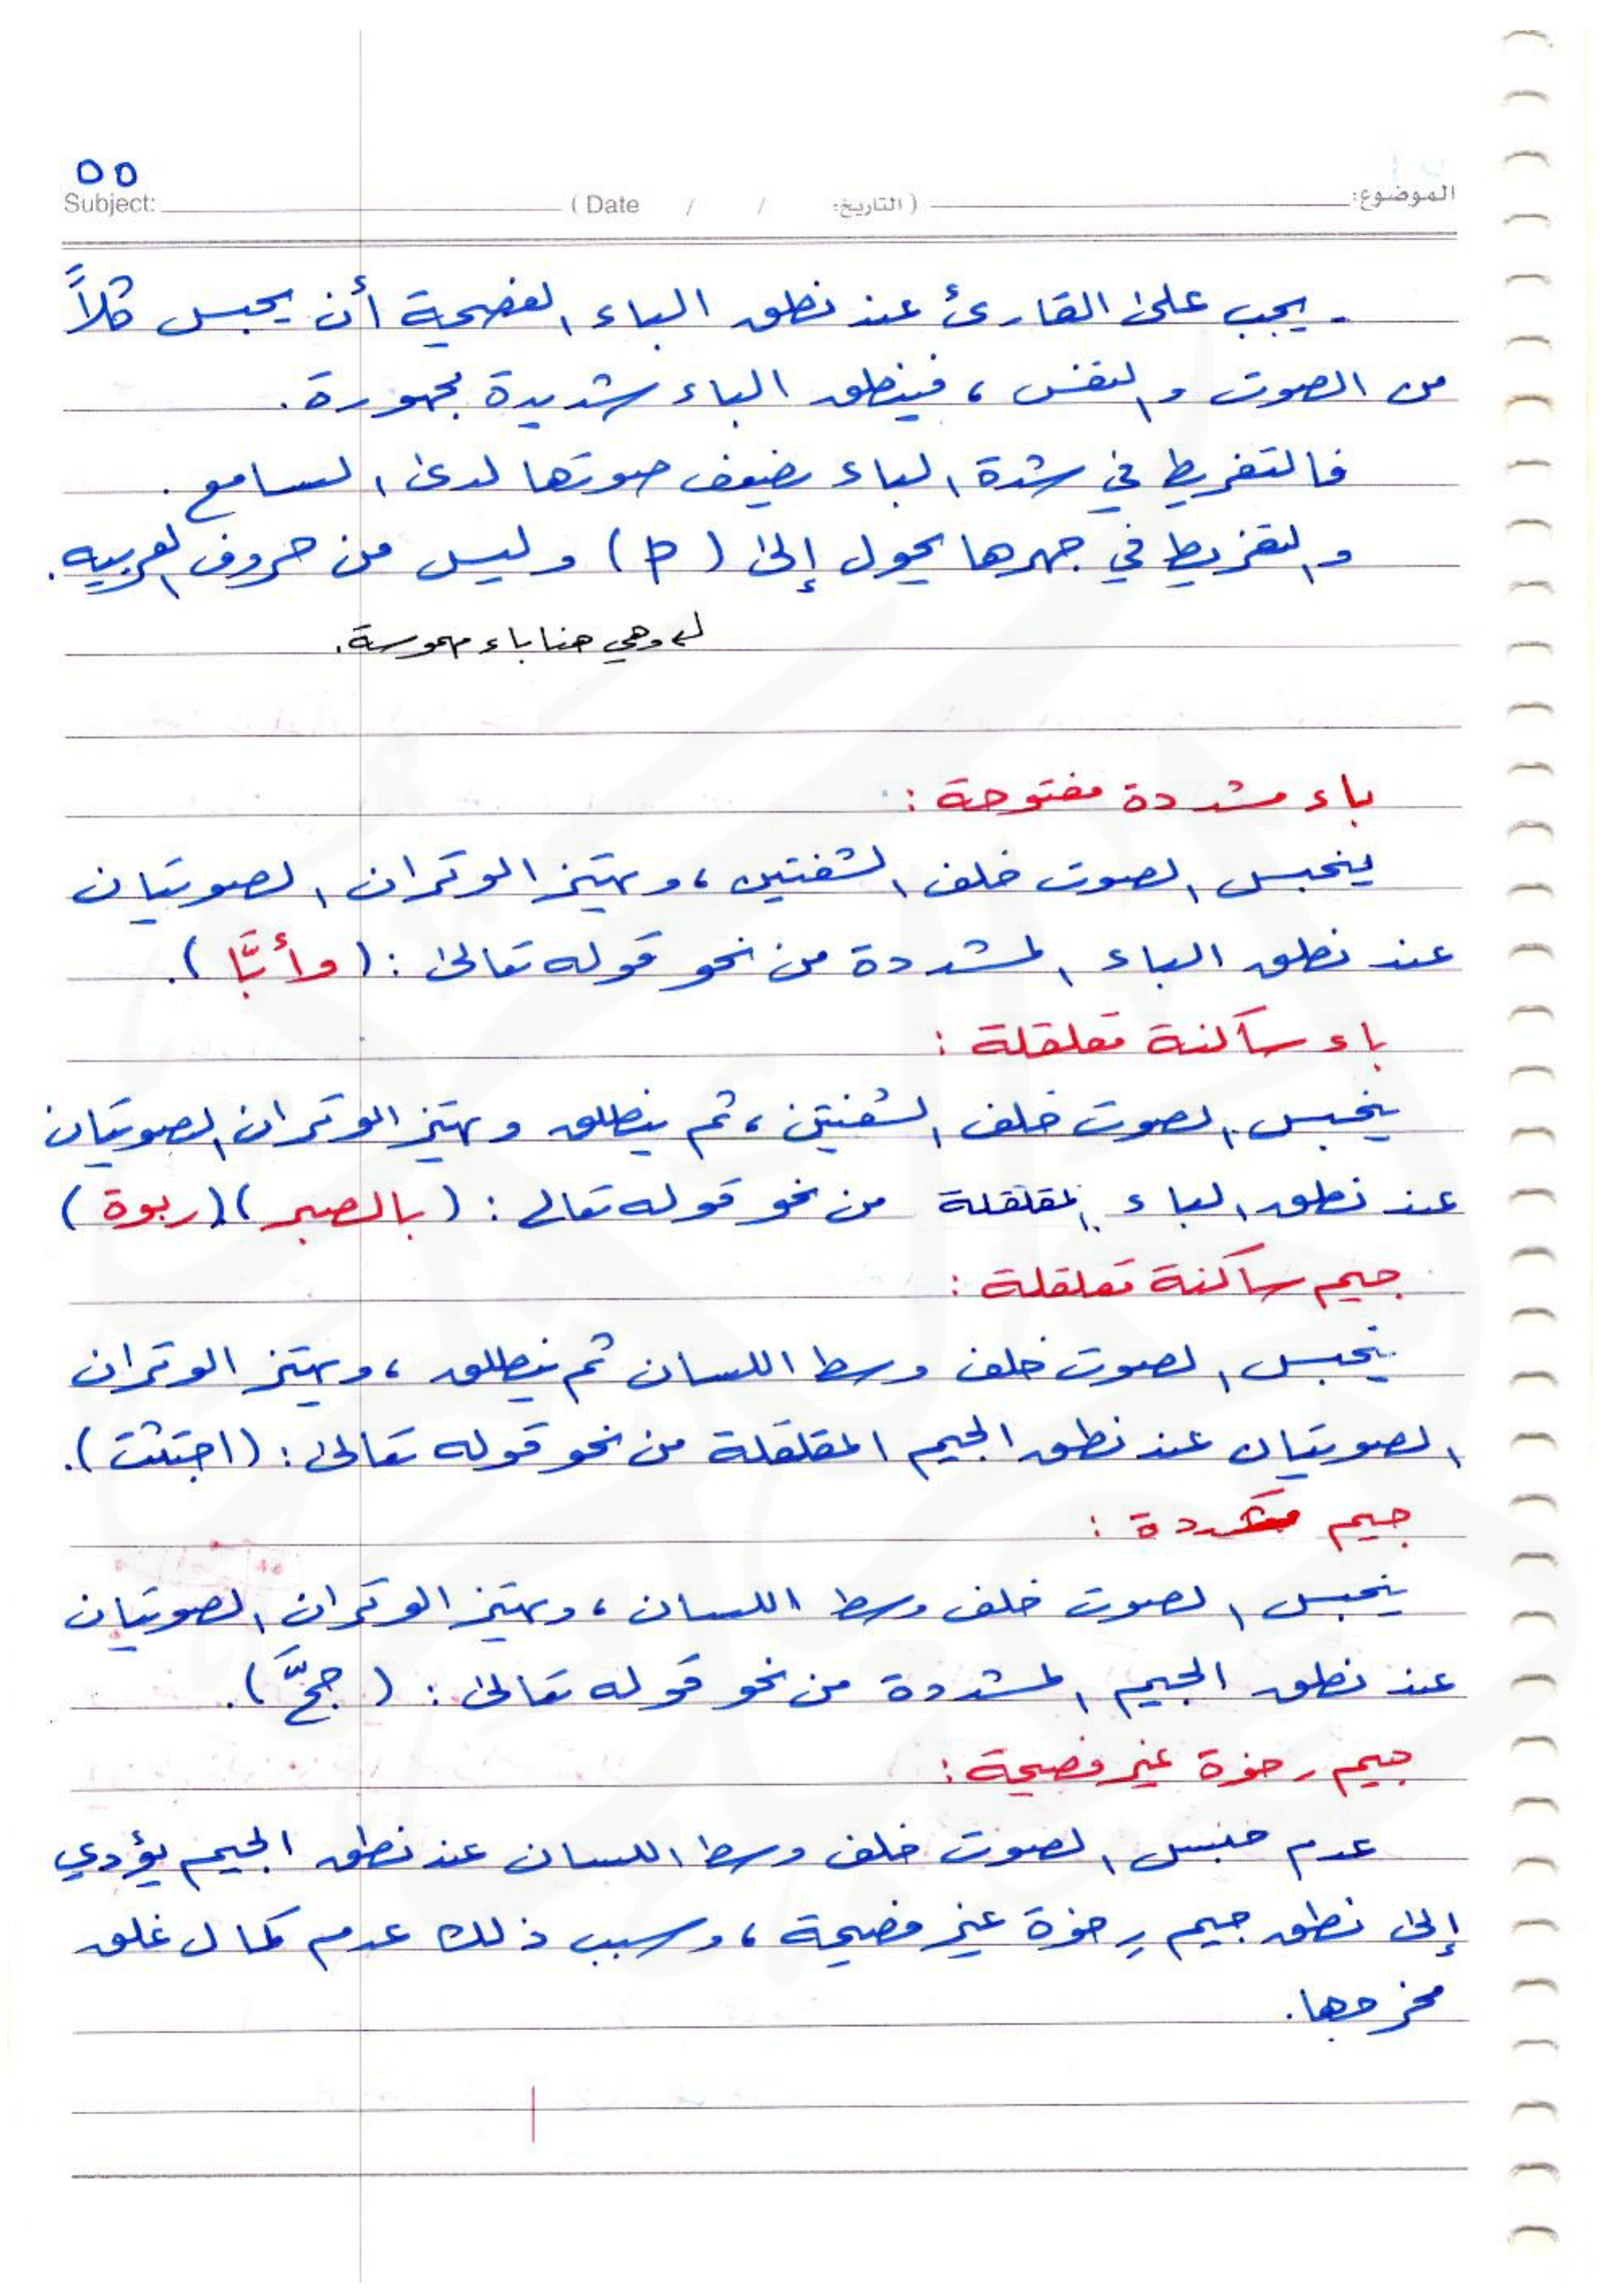 ٥٥
Subject: (Date / / التاريخ:) الموضوع:
- يجب على القارئ عند نطق الباء الفصيحة أن يحبس كلاً
من الصوت والنفس ، فينطق الباء شديدة مجهورة .
فالتفريط في شدة الباء يضعف صوتها لدى السامع .
والتفريط في جهرها يحول إلى ( p ) وليس من حروف العربيه .
وهي هنا باء مهموسة .
باء مشددة مفتوحة :
ينحبس الصوت خلف الشفتين ، ويهتز الوتران الصوتيان
عند نطق الباء المشددة من نحو قوله تعالى : ( وأبًّا ) .
باء ساكنة مقلقلة :
ينحبس الصوت خلف الشفتين ، ثم ينطلق ويهتز الوتران الصوتيان
عند نطق الباء المقلقلة من نحو قوله تعالى : ( بالصبر ) ( ربوة )
جيم ساكنة مقلقلة :
ينحبس الصوت خلف وسط اللسان ثم ينطلق ، ويهتز الوتران
الصوتيان عند نطق الجيم المقلقلة من نحو قوله تعالى : ( اجتثت ) .
جيم مشددة :
ينحبس الصوت خلف وسط اللسان ، ويهتز الوتران الصوتيان
عند نطق الجيم المشددة من نحو قوله تعالى : .
جيم رخوة غير فصيحة :
عدم حبس الصوت خلف وسط اللسان عند نطق الجيم يؤدي
إلى نطق جيم رِخوة غير فصيحة ، وسبب ذلك عدم كمال غلق
مخرجها .